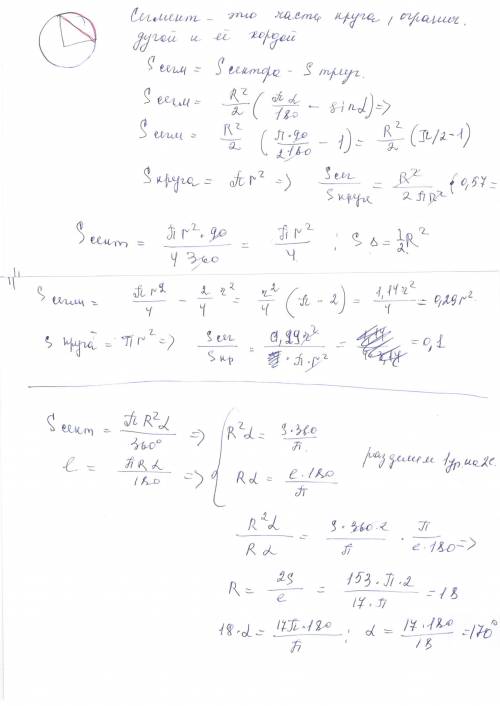 Сегмент - это часть круга, огранич.
дугой и её хордой
Sсегм = Sсектора - S треуг.
Sсегм = R²/2 (πα/180 - sinα) =>
Sсегм = R²/2 (π·90/180 - 1) = R²/2 (π/2 - 1)
Sкруга = πr² => Sсег/Sкруга = R²/2πR² (0,57 =
Sсект = πr²·90/360 = πr²/4 ; S∆ = 1/2 R²
Sсегм = πr²/4 - 2/4 r² = r²/4 (π - 2) = 1,14r²/4 = 0,29r².
S круга = πr² => Sсег/Sкр = 0,29r²/π·r² = 0,1
Sсект = πR²α/360° => R²α = S·360/π
l = πRα/180 => Rα = l·180/π
разделим 1 ур на 2е.
R²α/Rα = S·360/π · π/l·180 =>
R = 2S/l = 153·π·2/17·π = 18
18·α = 17π·180/π ; α = 17·180/18 = 170°